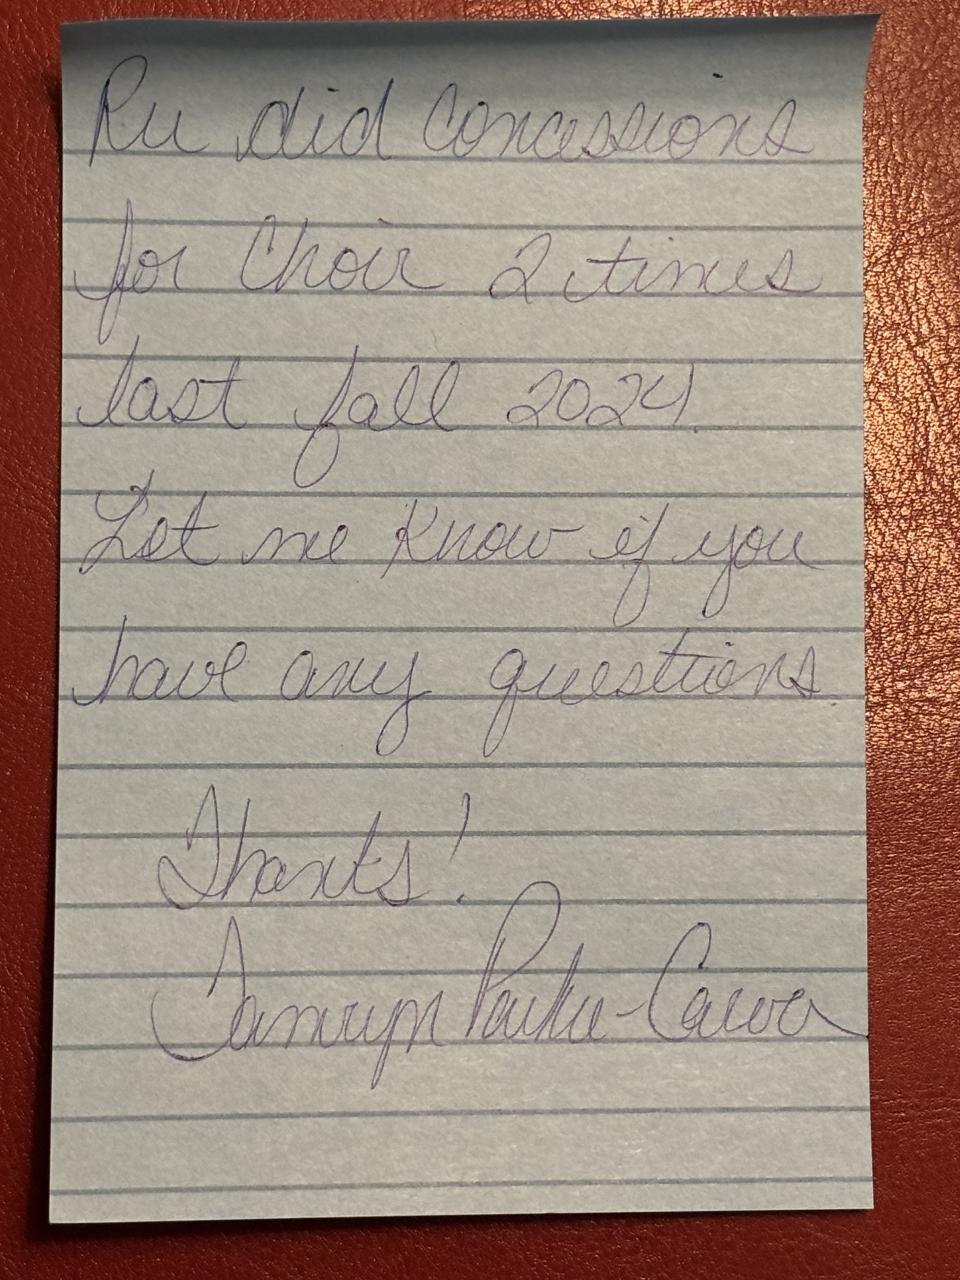 Ru did Concessions
for Choir 2 times
last fall 2024.
Let me know if you
have any questions
Thanks!
Tamryn Parker-Carver